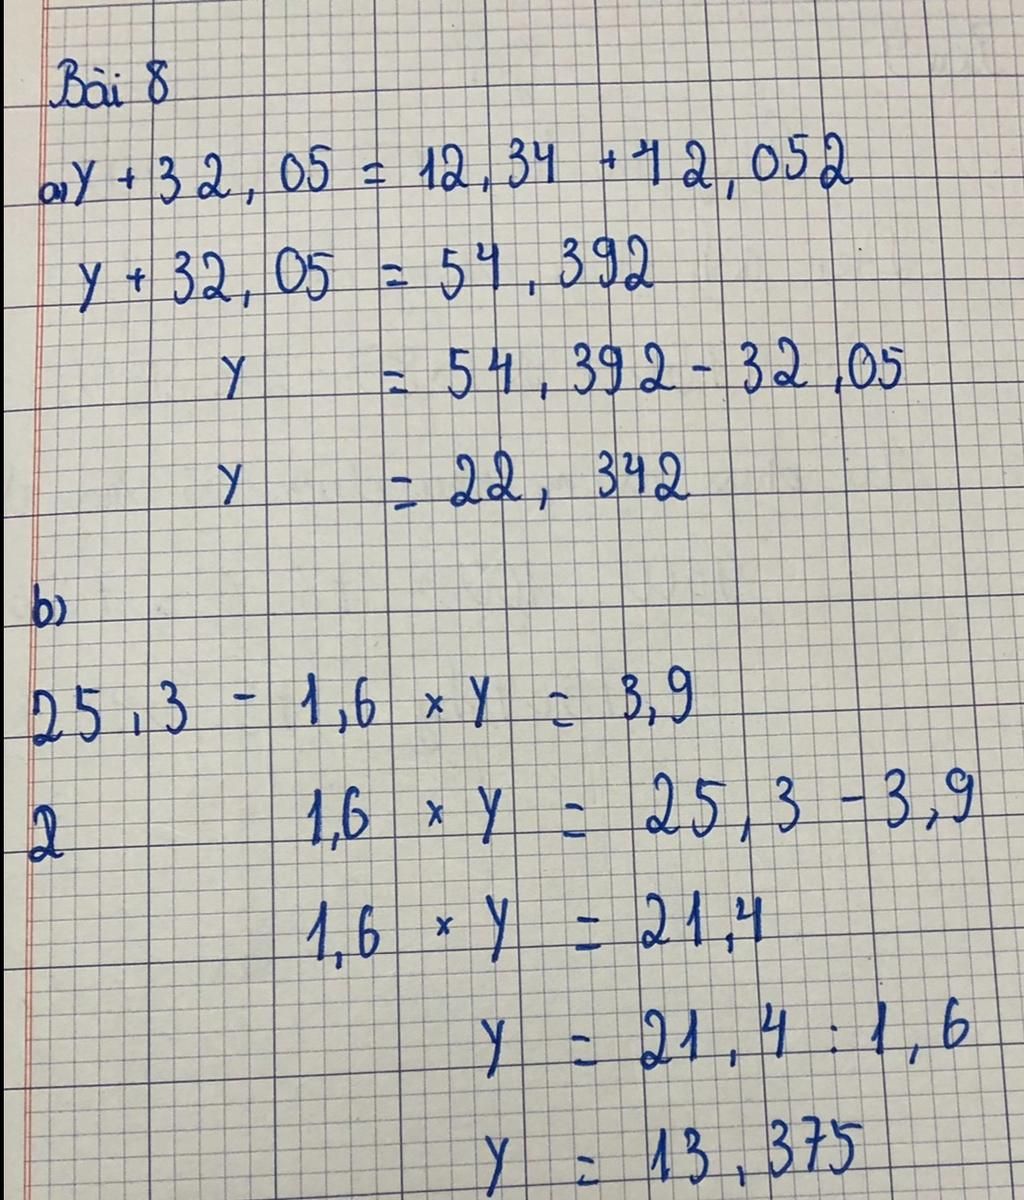 Bài 8
a) y + 32,05 = 12,34 + 42,052
y + 32,05 = 54,392
y = 54,392 - 32,05
y = 22,342
b)
25,3 - 1,6 × y = 3,9
2 1,6 × y = 25,3 - 3,9
1,6 × y = 21,4
y = 21,4 : 1,6
y = 13,375